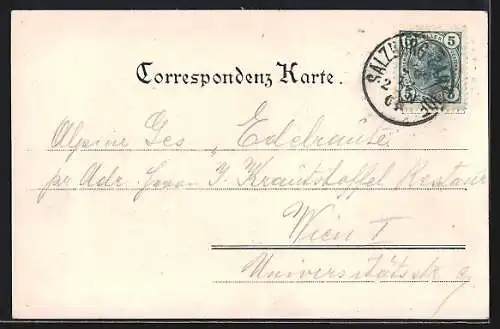 5 5
SALZBURG
2
04
Correspondenz Karte.
Alpine Ges „Edelraute"
pr Adr. Herrn J. Krautstoffel Restaur
Wien I
Universitätsstr 9